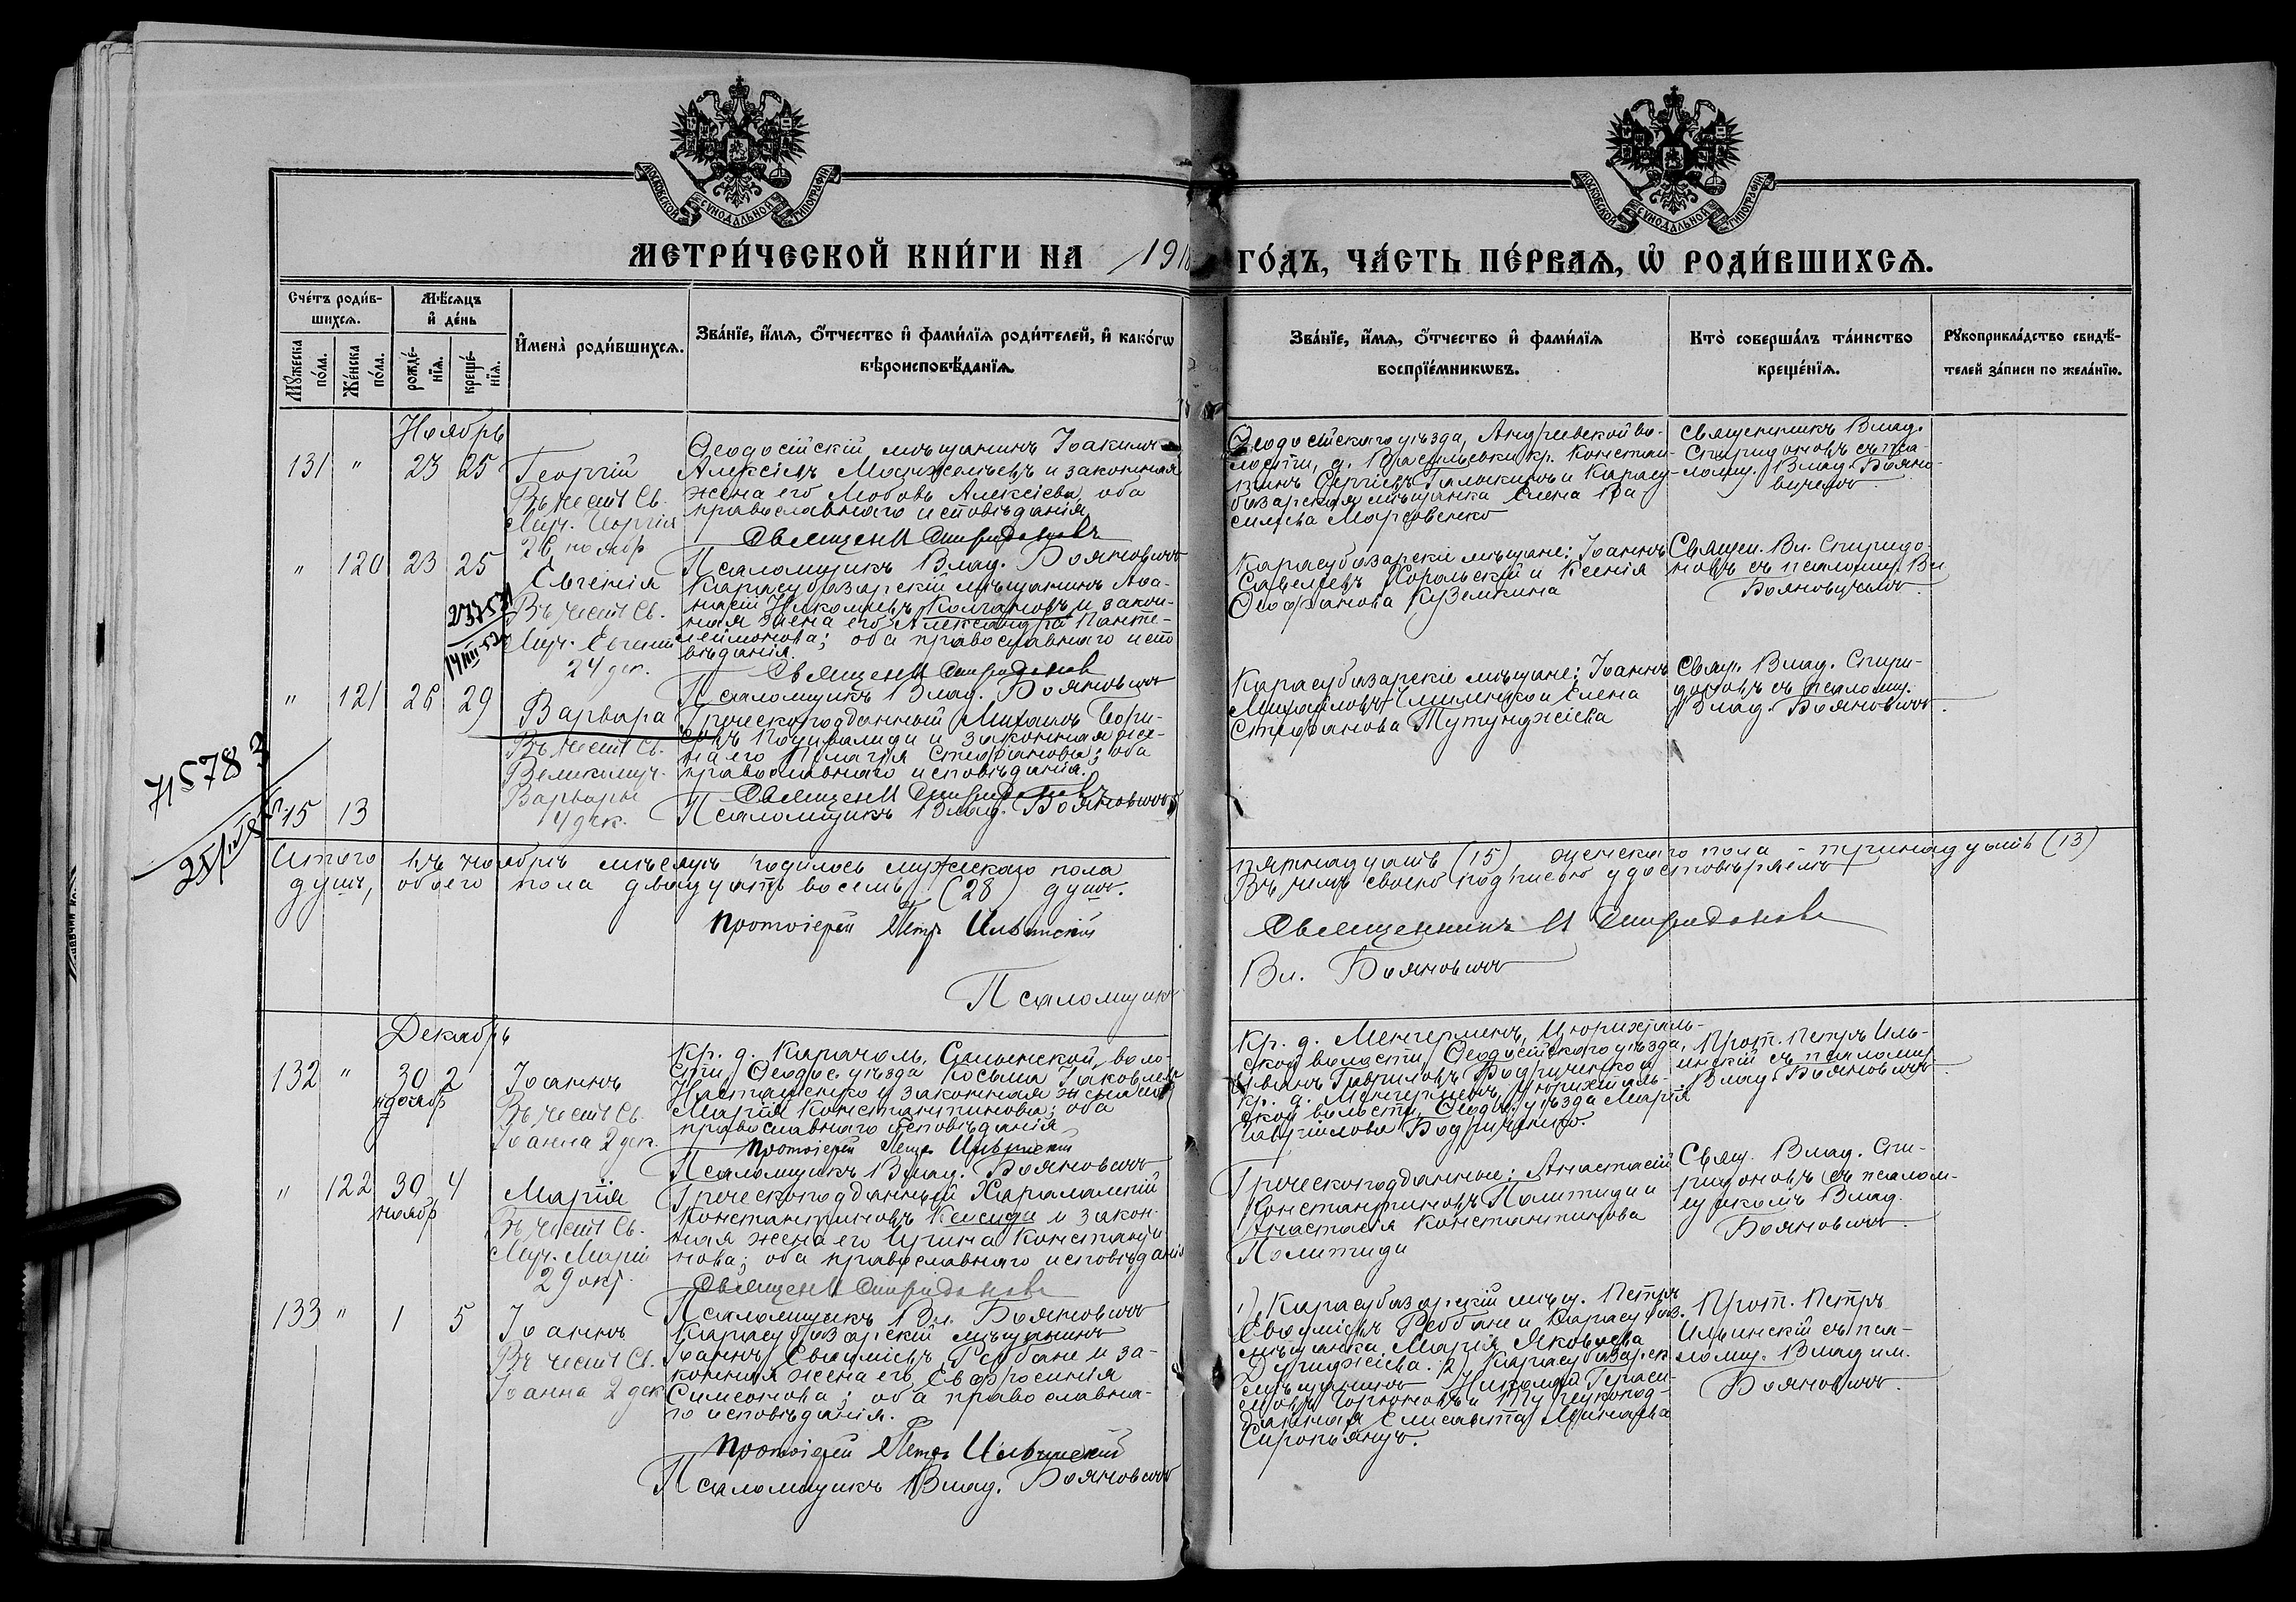 МОСКОВСКОЙ СѴНОДАЛЬНОЙ ТИПОГРАФІИ
МОСКОВСКОЙ СѴНОДАЛЬНОЙ ТИПОГРАФІИ
МЕТРИ́ЧЕСКОЙ КНИ́ГИ НА 191
ГО́ДЪ, ЧА́СТЬ ПЕ́РВАЯ, Ѡ҆ РОДИ́ВШИХСЯ.
Сче́тъ роди́в-
шихся.
Мѣ́сяцъ
и҆ де́нь
Мꙋ́жеска по́ла.
Же́нска по́ла.
рожде́-
нїя.
креще́-
нїя.
И҆мена̀ роди́вшихся.
Зва́нїе, и҆́мя, о҆́тчество и҆ фами́лїя роди́телей, и҆ како́гѡ
вѣроисповѣ́данїя.
Зва́нїе, и҆́мя, о҆́тчество и҆ фами́лїя
воспрїе́мникѡвъ.
Кто̀ соверша́лъ та́инство
креще́нїя.
Рꙋкоприкла́дство свидѣ́-
телей за́писи по жела́нїю.
Ноябрь
131 " 23 25
Георгій
Въ честь Св.
Муч. Георгія
26 ноябр
Ѳеодосійскій мѣщанинъ Іоакимъ
Алексіевъ и законная
жена его Любовь Алексіева, оба
православнаго исповѣданія
Священ И Спиридоновъ
Псаломщикъ Влад. Бояновичъ
Ѳеодосійскаго уѣзда, Андреевской во-
лости, д. Васильевки кр. Констан-
тинъ Сергіевъ Галыкинъ и Карасу-
базарская мѣщанка Елена Ва
сильева Марфовенко
Священникъ Влад.
Спиридоновъ съ пса-
ломщ. Влад. Бояно-
вичемъ
" 120 23 25
Евгенія
Въ честь Св.
Муч. Евгеніи
24 дек.
Карасубазарскій мѣщанинъ Аѳа-
насій Николаевъ Колгановъ и закон-
ная жена его Александра Панте-
леимонова; оба православнаго испо
вѣданія.
Священ И Спиридонов
Псаломщикъ Влад. Бояновичъ
Карасубазарскіе мѣщане: Іоаннъ
Савельевъ Корольскій и Ксенія
Ѳеофанова Куземкина
Священ. Вл. Спиридо
новъ съ псаломщ. Вл
Бояновичемъ.
" 121 26 29
Варвара
Въ честь Св.
Великомуч.
Варвары
4 дек.
Греческоподданный Михаилъ Геор-
евъ и законная же-
на его Пелагія Стефанова; оба
православнаго исповѣданія.
Священ И Спиридоновъ
Псаломщикъ Влад. Бояновичъ
Карасубазарскіе мѣщане: Іоаннъ
Михайловъ и Елена
Стефанова Тутунджіева
Свящ. Влад. Спири-
доновъ съ псаломщ.
Влад. Бояновичъ.
71578 3
15 13
Итого въ ноябрѣ мѣсяцѣ родилось мужескаго пола
пятнадцать (15), женскаго пола - тринадцать (13)
душъ, обоего пола двадцать восемь (28) душъ.
Въ чемъ своею подписью удостовѣряемъ
Протоіерей Петръ Ильинскій
Священникъ И Спиридоновъ
Псаломщикъ
Вл. Бояновичъ
Декабрь
132 " 30 2
ноябр
Іоаннъ
Въ честь Св.
Іоанна 2 дек.
Кр. д. Карачоль, Салынской воло-
сти, Ѳеодос. уѣзда Косьма Іаковлевъ
Настащенко и законная жена его
Марія Константинова; оба
православнаго исповѣданія
Протоіерей Петръ Ильинскій
Псаломщикъ Влад. Бояновичъ
Кр. д. Менгерменъ, Цюрихталь-
ской волости, Ѳеодосійскаго уѣзда,
Иванъ Гавриловъ Бодриченко и
кр. д. Менгерменъ, Цюрихталь-
ской волости, Ѳеодос. уѣзда Марія
Гавріилова Бодриченко.
Прот. Петръ Иль-
инскій съ псаломщ.
Влад. Бояновичъ
" 122 30 4
ноябр
Марія
Въ честь Св.
Муч. Маріи
29 окт.
Греческоподданный Харалампій
Константиновъ Кексиди и закон-
ная жена его Ирина Константи
нова; оба православнаго исповѣданія
Священ И Спиридоновъ
Псаломщикъ Вл. Бояновичъ
Греческоподданные: Анастасій
Константиновъ Политиди и
Анастасія Константинова
Политиди
Свящ. Влад. Спи-
ридоновъ съ псалом-
щикомъ Влад.
Бояновичъ.
133 " 1 5
Іоаннъ
Въ честь Св.
Іоанна 2 дек
Карасубазарскій мѣщанинъ
Іоаннъ Евѳиміевъ Реббане и за-
конная жена его Евфросинія
Симеонова; оба православна-
го исповѣданія.
Протоіерей Петръ Ильинскій
Псаломщикъ Влад. Бояновичъ
1) Карасубазарскій мѣщ. Петръ
Евѳиміевъ Реббане и Карасубаз.
мѣщанка Марія Яковлева
2) Карасубазарск
мѣщанинъ Николай Гераси-
мовъ и
данная Елисавета Минаева
Сиропьянцъ.
Прот. Петръ
Ильинскій съ пса-
ломщ. Владим.
Бояновичъ.